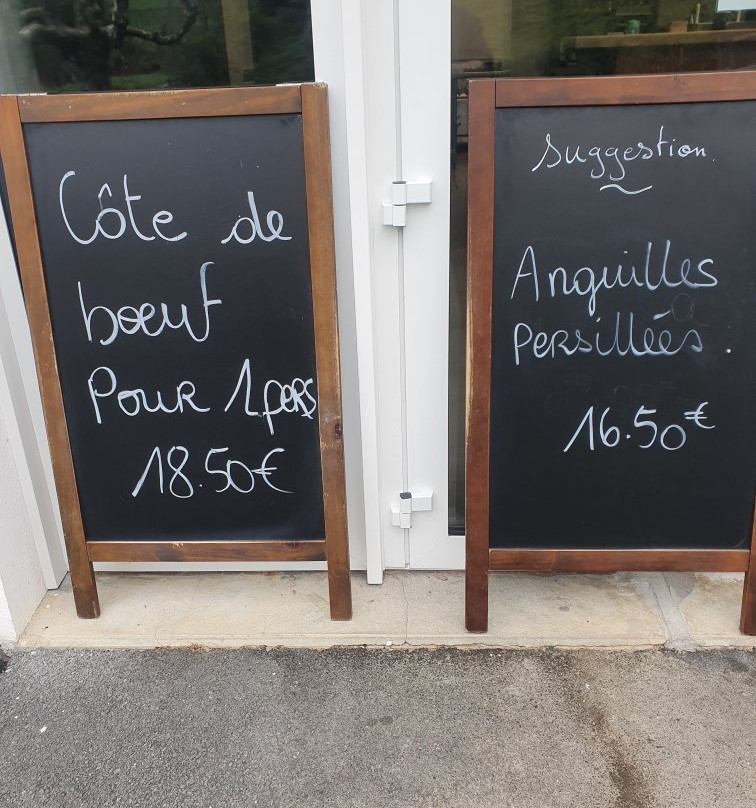 Côte de
boeuf
Pour 1 pers
18.50€
Suggestion.
Anguilles
Persillées.
16.50€